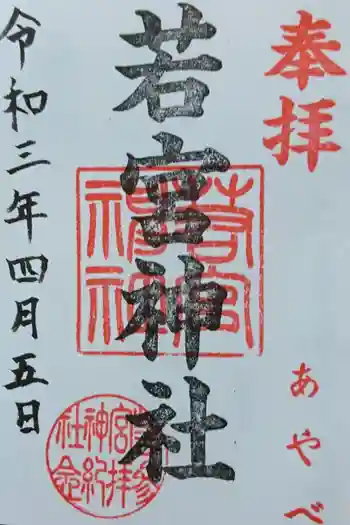 奉拝
あやべ
若宮神社
若宮神社
若宮神社参拝紀念
令和三年四月五日